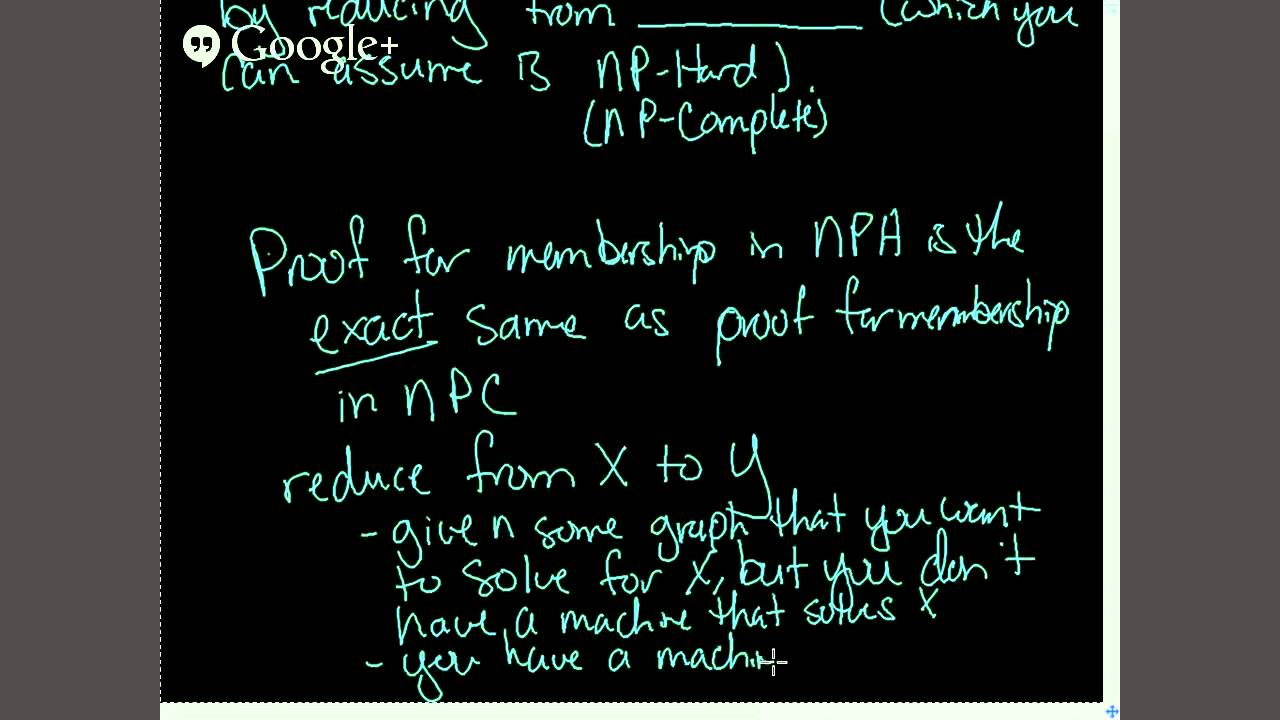 by reducing from ________ (which you
Google+
can assume is NP-Hard).
(NP-Complete)
Proof for membership in NPH is the
exact same as proof for membership
in NPC
reduce from X to Y
- given some graph that you want
to solve for X, but you don't
have a machine that solves X
- you have a machin